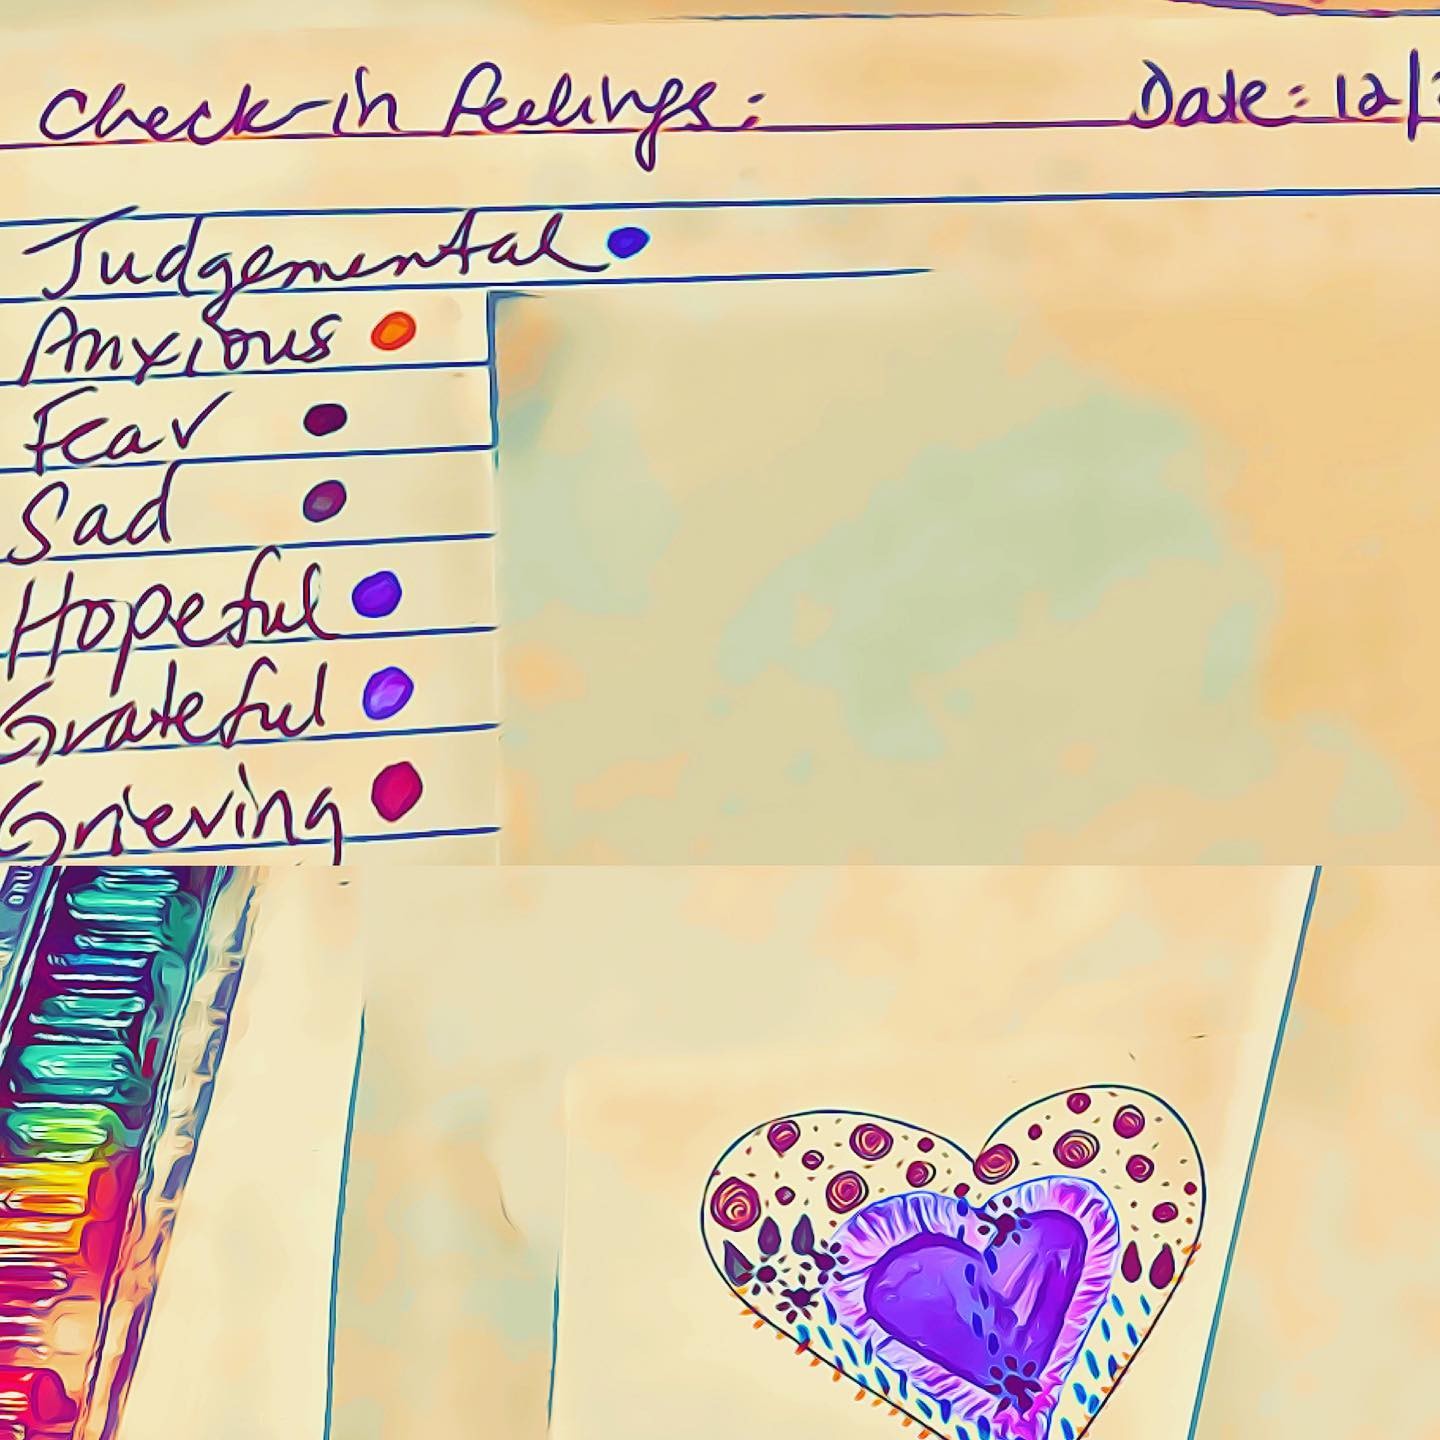 Check-in Feelings: Date: 12/
Judgemental
Anxious
Fear
Sad
Hopeful
Grateful
Grieving